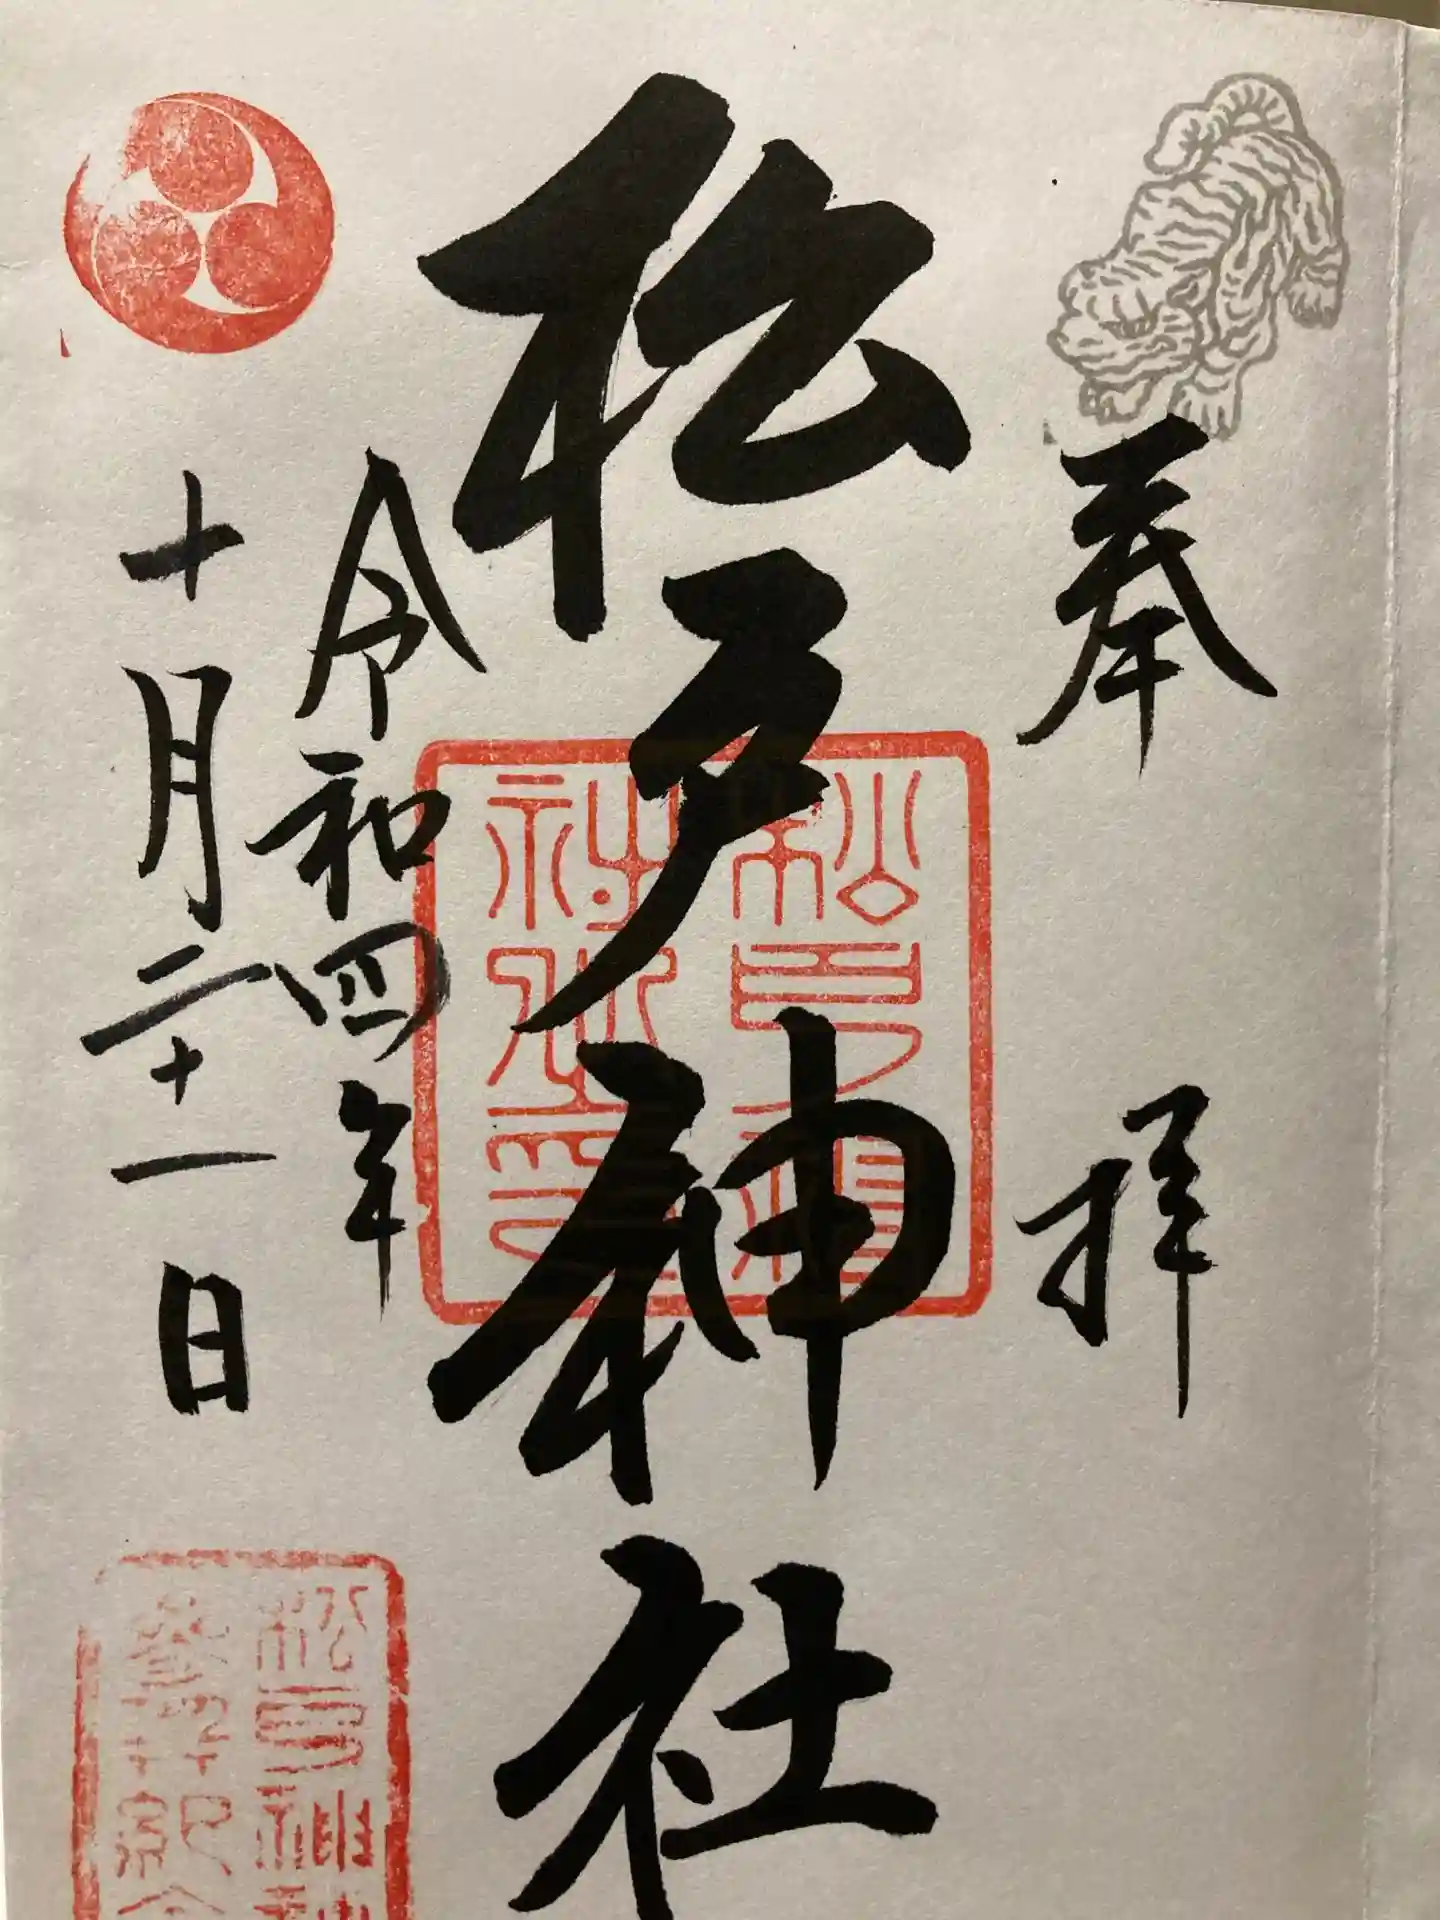 奉拝
松戸神社
令和四年
十月二十一日
松戸神社
参拝記念